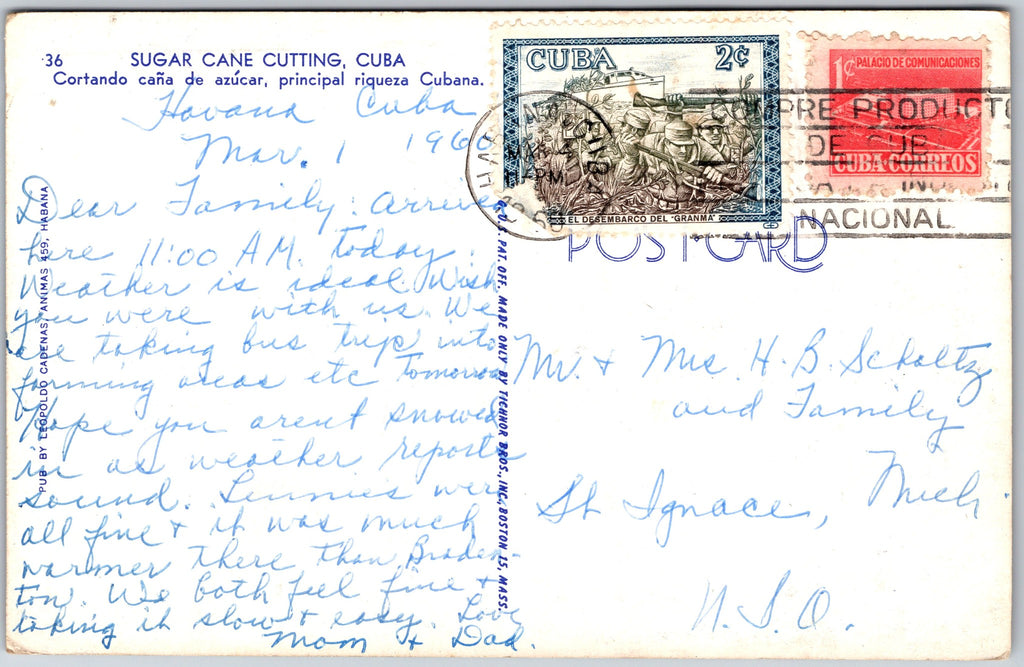 36 SUGAR CANE CUTTING, CUBA
Cortando caña de azúcar, principal riqueza Cubana.
Havana Cuba
Mar. 1 1960
Dear Family: Arrived
here 11:00 A.M. today.
Weather is ideal. Wish
you were with us. We
are taking bus trip into
farming areas etc tomorrow
Hope you arent snowed
in as weather reports
sound. Lennies were
all fine & it was much
warmer there than Braden-
ton. We both feel fine &
taking it slow & easy. Love
Mom & Dad.
PUB. BY LEOPOLDO CADENAS, ANIMAS 459, HABANA
G.U.S. PAT. OFF. MADE ONLY BY TICHNOR BROS., INC., BOSTON 15, MASS.
CUBA 2¢
EL DESEMBARCO DEL "GRANMA"
1¢ PALACIO DE COMUNICACIONES
CUBA CORREOS
CUBA
PM
COMPRE PRODUCTO
DE CUB
NACIONAL
POST CARD
Mr. & Mrs. H. B. Scholtz
and Family
St Ignace, Mich.
U.S.A.